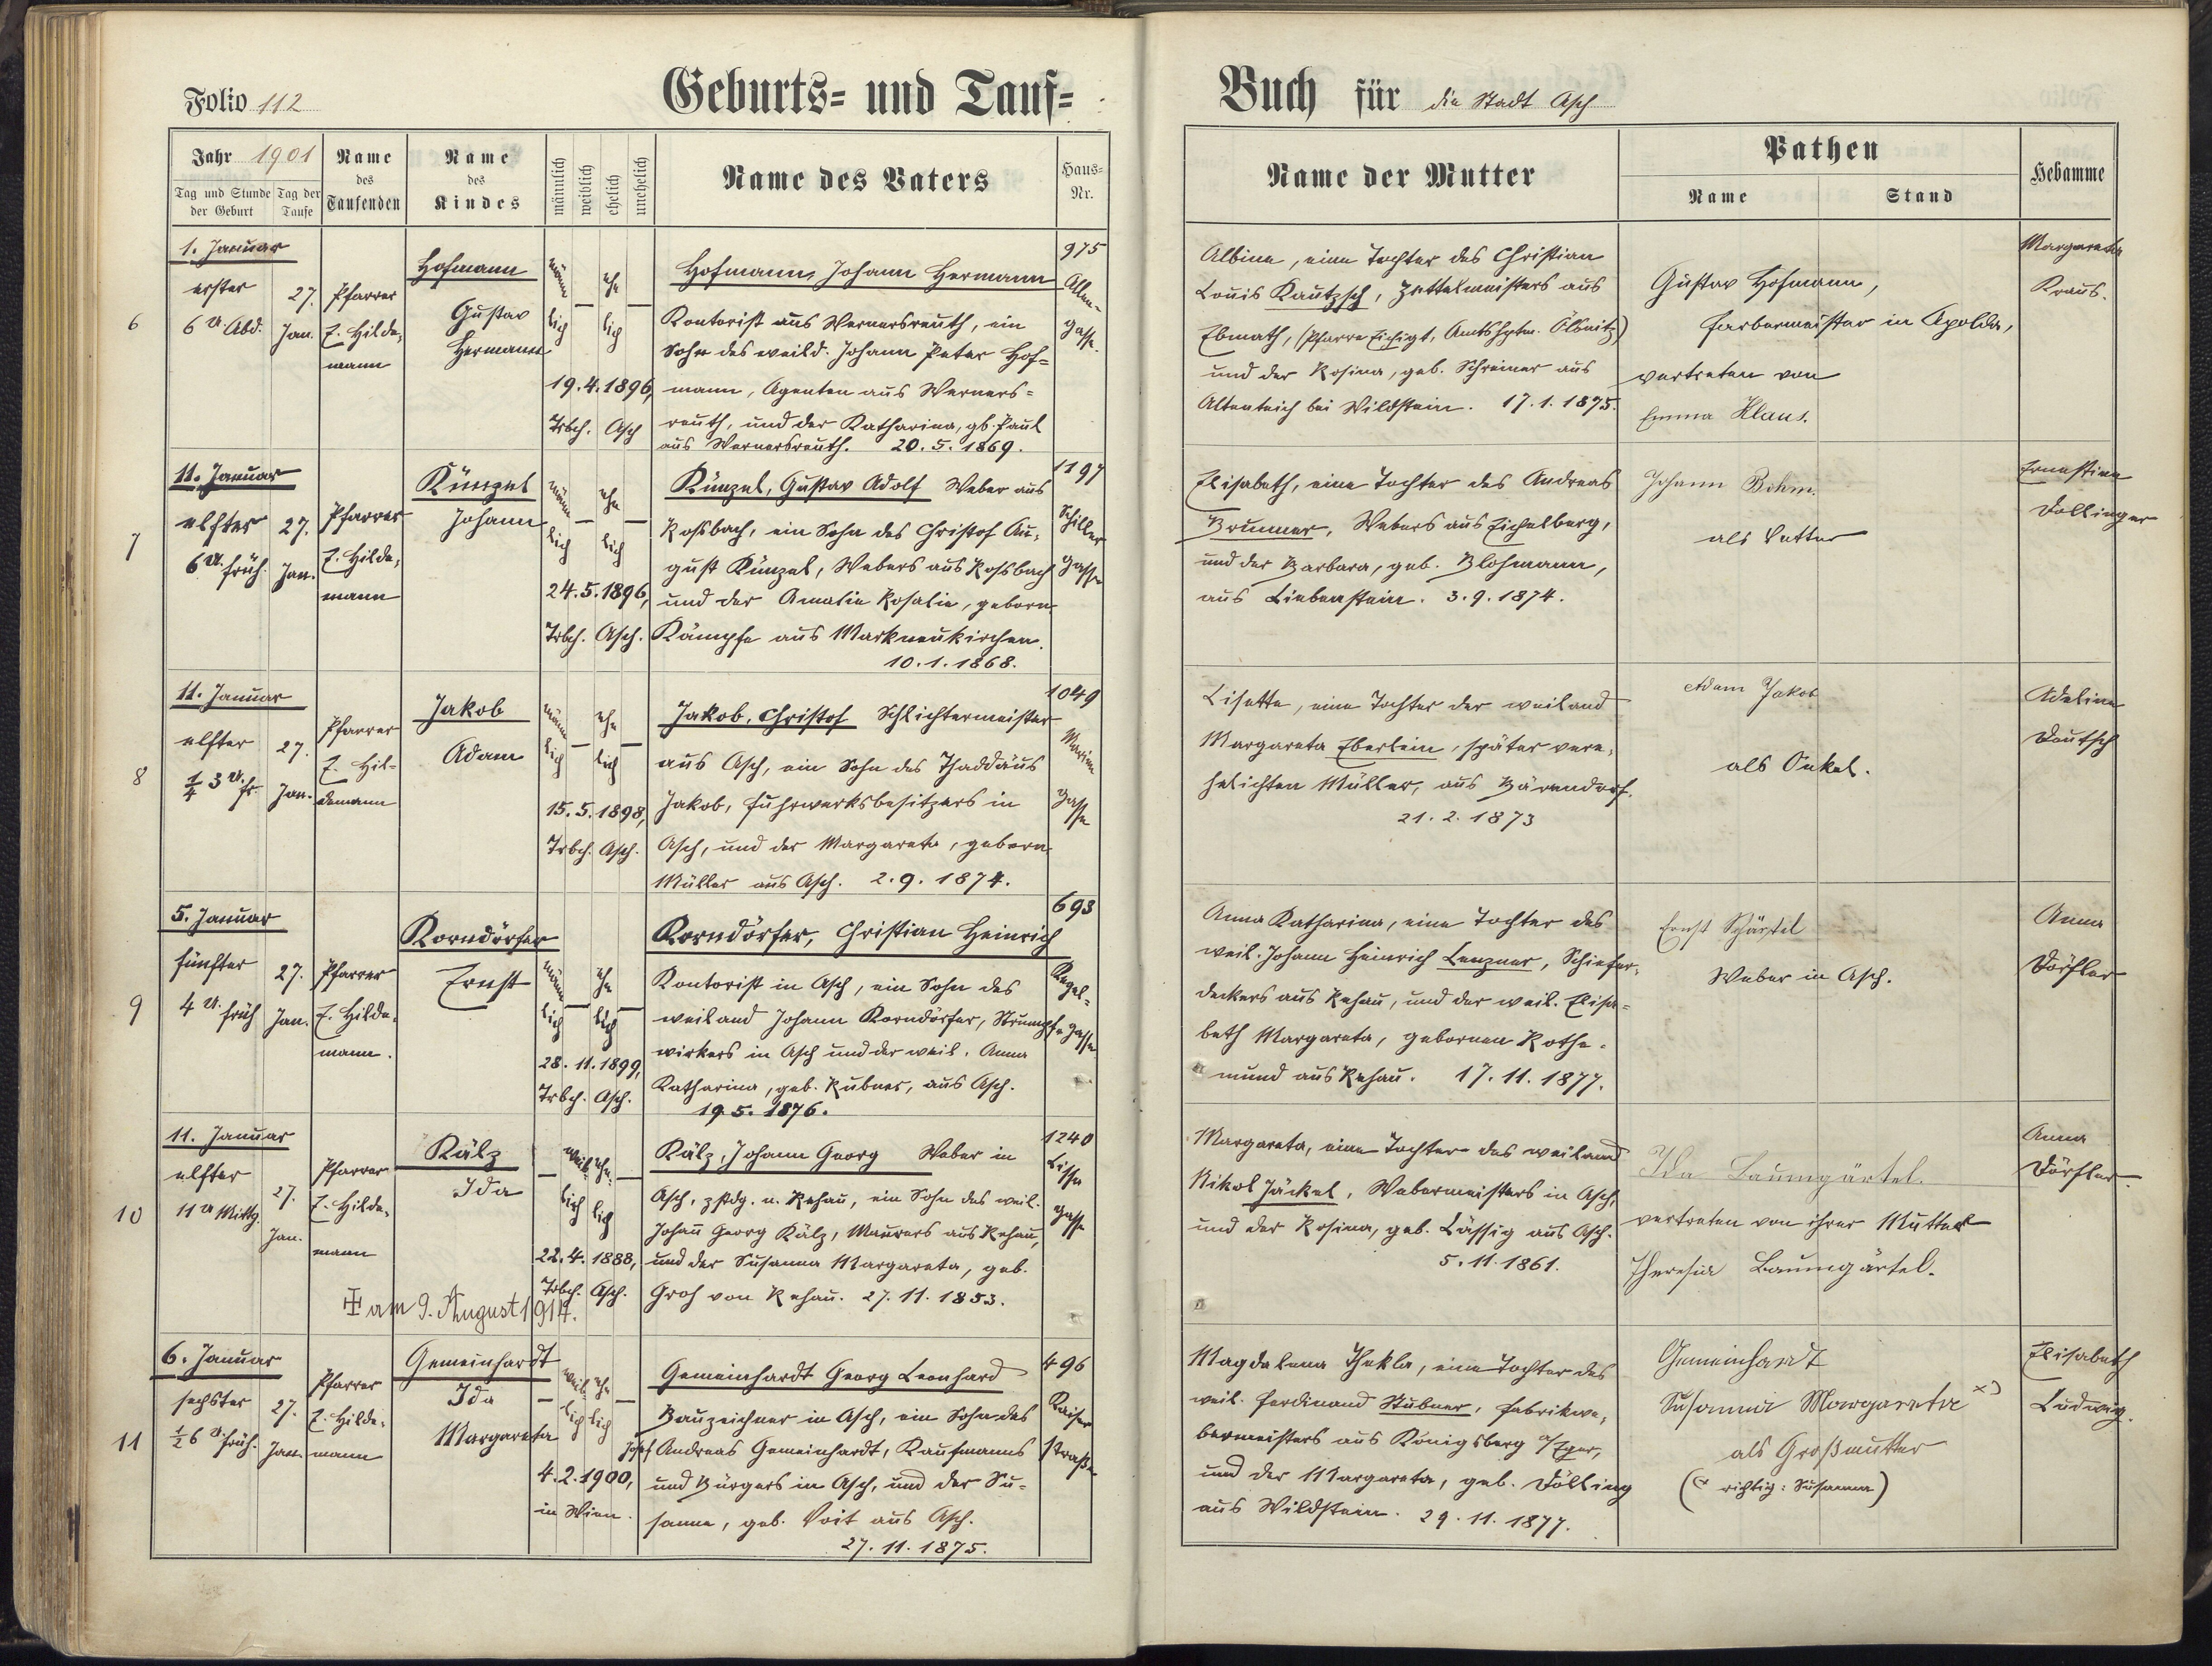 Folio 112
Geburts- und Tauf-
Jahr 1901
Tag und Stunde der Geburt
Tag der Taufe
Name des Taufenden
Name des Kindes
männlich
weiblich
ehelich
unehelich
Name des Vaters
Haus-Nr.
6
1. Januar
erster
6 U. Abd.
27. Jan.
Pfarrer
E. Hilde-
mann
Hofmann
Gustav
Hermann
männ
lich
—
ehe
lich
—
19.4.1896,
Trbch. Asch
Hofmann, Johann Hermann
Kontorist aus Wernersreuth, ein
Sohn des weild. Johann Peter Hof-
mann, Agenten aus Werners-
reuth, und der Katharina, gb. Paul
aus Wernersreuth. 20.5.1869.
975
Allee-
gasse.
7
11. Januar
elfter
6 U. früh
27. Jan.
Pfarrer
E. Hilde-
mann
Künzel
Johann
männ
lich
—
ehe
lich
—
24.5.1896,
Trbch. Asch.
Künzel, Gustav Adolf Weber aus
Roßbach, ein Sohn des Christof Au-
gust Künzel, Webers aus Roßbach
und der Amalie Rosalie, geborn.
Kämpfe aus Markneukirchen.
10.1.1868.
1197
Schiller
gasse
8
11. Januar
elfter
1/4 3 U. fr.
27. Jan.
Pfarrer
E. Hil-
demann
Jakob
Adam
männ
lich
—
ehe
lich
—
15.5.1898,
Trbch. Asch.
Jakob, Christof Schlichtermeister
aus Asch, ein Sohn des Thaddäus
Jakob, Fuhrwerksbesitzers in
Asch, und der Margareta, geborn.
Müller aus Asch. 2.9.1874.
1049
Marien
gasse
9
5. Januar
fünfter
4 U. früh
27. Jan.
Pfarrer
E. Hilde-
mann.
Korndörfer
Ernst
männ
lich
—
ehe
lich
—
28.11.1899,
Trbch. Asch.
Korndörfer, Christian Heinrich
Kontorist in Asch, ein Sohn des
weiland Johann Korndörfer, Strumpf-
wirkers in Asch und der weil. Anna
Katharina, geb. Kubner, aus Asch.
19.5.1876.
693
Kegel-
gasse
10
11. Januar
elfter
11 U Mittg.
27. Jan.
Pfarrer
E. Hilde-
mann
Kälz
Ida
—
weib
lich
ehe
lich
—
22.4.1888,
Trbch. Asch.
Kälz, Johann Georg Weber in
Asch, zstdg. n. Rehau, ein Sohn des weil.
Johan̄ Georg Kälz, Maurers aus Rehau,
und der Susanna Margareta, geb.
Groh von Rehau. 27.11.1853.
1240
gasse
am 9. August 1914.
11
6. Januar
sechster
1/2 6 U. früh.
27. Jan.
Pfarrer
E. Hilde-
mann
Gemeinhardt
Ida
Margareta
—
weib
lich
ehe
lich
—
4.2.1900,
in Wien.
Gemeinhardt Georg Leonhard
Bauzeichner in Asch, ein Sohn des
Josef Andreas Gemeinhardt, Kaufmanns
und Bürgers in Asch, und der Su-
sanna, geb. Voit aus Asch.
27.11.1875.
496
Kaiser
straße
Buch für die Stadt Asch
Name der Mutter
Pathen
Name
Stand
Hebamme
Albine, eine Tochter des Christian
Louis Kautzsch, Zettelmeisters aus
Ebmath, (Pfarre Eichigt, Amtshptm. Ölsnitz)
und der Rosina, geb. Schreiner aus
Altenteich bei Wildstein. 17.1.1875.
Gustav Hofmann,
Farbermeister in Apolda,
vertreten von
Emma Klaus.
Margareta
Kraus.
Elisabeth, eine Tochter des Andreas
Brunner, Webers aus Eichelberg,
und der Barbara, geb. Bloßmann,
aus Liebenstein. 3.9.1874.
Johann Böhm.
als Vetter
Ernestine
Dollinger
Lisette, eine Tochter der weiland
Margareta Eberlein, später vere-
helichten Müller, aus Bärendorf.
21.2.1873
Adam Jakob
als Onkel.
Adeline
Deutsch
Anna Katharina, eine Tochter des
weil. Johann Heinrich Lenzner, Schiefer-
deckers aus Rehau, und der weil. Elisa-
beth Margareta, gebornen Rothe-
mund aus Rehau. 17.11.1877.
Ernst Schärtel
Weber in Asch.
Anna
Dörfler
Margareta, eine Tochter des weiland
Nikol Jäckel, Webermeisters in Asch,
und der Rosina, geb. Lässig aus Asch.
5.11.1861.
Ida Baumgärtel.
vertreten von ihrer Mutter
Theresia Baumgärtel.
Anna
Dörfler.
Magdalena Thekla, eine Tochter des
weil. Ferdinand Stübner, Fabrikwe-
bermeisters aus Königsberg a/Eger,
und der Margareta, geb. Dölling
aus Wildstein. 29.11.1877.
Gemeinhardt
Susanna Margaretha x)
als Großmutter
(x richtig: Susanna)
Elisabeth
Ludwig.